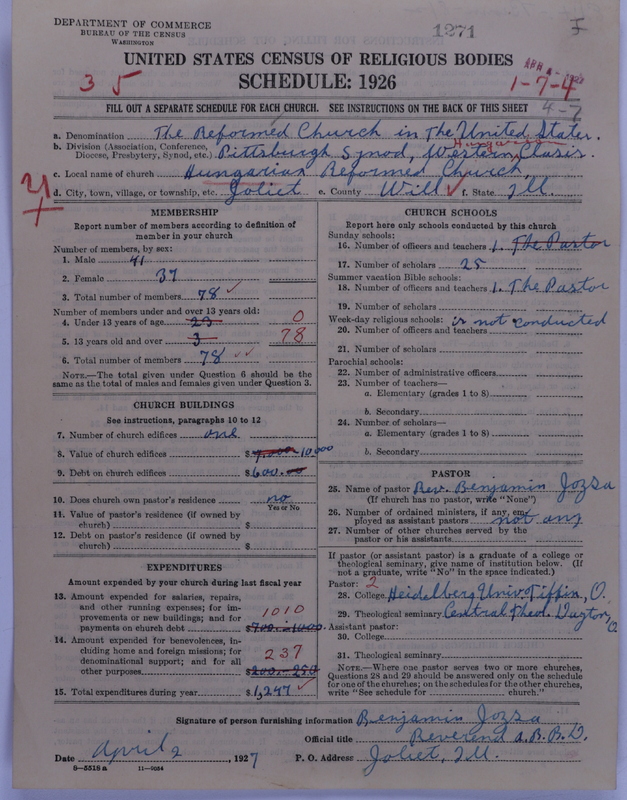 DEPARTMENT OF COMMERCE
BUREAU OF THE CENSUS
WASHINGTON
1271
I
UNITED STATES CENSUS OF RELIGIOUS BODIES
SCHEDULE: 1926
3 5
1-7-4
4-7
FILL OUT A SEPARATE SCHEDULE FOR EACH CHURCH. SEE INSTRUCTIONS ON THE BACK OF THIS SHEET
a. Denomination The Reformed Church in The United States.
b. Division (Association, Conference, Diocese, Presbytery, Synod, etc.) Pittsburgh Synod, Western Hungarian Classis.
c. Local name of church Hungarian Reformed Church,
d. City, town, village, or township, etc. Joliet e. County Will f. State Ill.
MEMBERSHIP
Report number of members according to definition of
member in your church
Number of members, by sex:
1. Male 41
2. Female 37
3. Total number of members 78
Number of members under and over 13 years old:
4. Under 13 years of age 23 0
5. 13 years old and over 3 78
6. Total number of members 78
NOTE.—The total given under Question 6 should be the
same as the total of males and females given under Question 3.
CHURCH BUILDINGS
See instructions, paragraphs 10 to 12
7. Number of church edifices one
8. Value of church edifices $ 10000
9. Debt on church edifices $600.00
10. Does church own pastor's residence no
Yes or No
11. Value of pastor's residence (if owned by
church) $
12. Debt on pastor's residence (if owned by
church) $
EXPENDITURES
Amount expended by your church during last fiscal year
13. Amount expended for salaries, repairs,
and other running expenses; for im-
provements or new buildings; and for
payments on church debt $700.-1000. 1010
14. Amount expended for benevolences, in-
cluding home and foreign missions; for
denominational support; and for all
other purposes $200.-250 237
15. Total expenditures during year $1,247
CHURCH SCHOOLS
Report here only schools conducted by this church
Sunday schools:
16. Number of officers and teachers 1. The Pastor
17. Number of scholars 25
Summer vacation Bible schools:
18. Number of officers and teachers 1. The Pastor
19. Number of scholars
Week-day religious schools: is not conducted
20. Number of officers and teachers
21. Number of scholars
Parochial schools:
22. Number of administrative officers
23. Number of teachers—
a. Elementary (grades 1 to 8)
b. Secondary
24. Number of scholars—
a. Elementary (grades 1 to 8)
b. Secondary
PASTOR
25. Name of pastor Rev. Benjamin Jozsa
(If church has no pastor, write "None")
26. Number of ordained ministers, if any, em-
ployed as assistant pastors not any
27. Number of other churches served by the
pastor or his assistants
If pastor (or assistant pastor) is a graduate of a college or
theological seminary, give name of institution below. (If
not a graduate, write "No" in the space indicated.)
Pastor: 2
28. College Heidelberg Univ. Tiffin, O.
29. Theological seminary Central Theol. Dayton, O
Assistant pastor:
30. College
31. Theological seminary
NOTE.—Where one pastor serves two or more churches,
Questions 28 and 29 should be answered only on the schedule
for one of the churches; on the schedules for the other churches,
write "See schedule for church."
Signature of person furnishing information Benjamin Jozsa
Official title Reverend A.B.B.D.
Date April 2, 1927 P. O. Address Joliet, Ill.
8—5518 a 11—9054